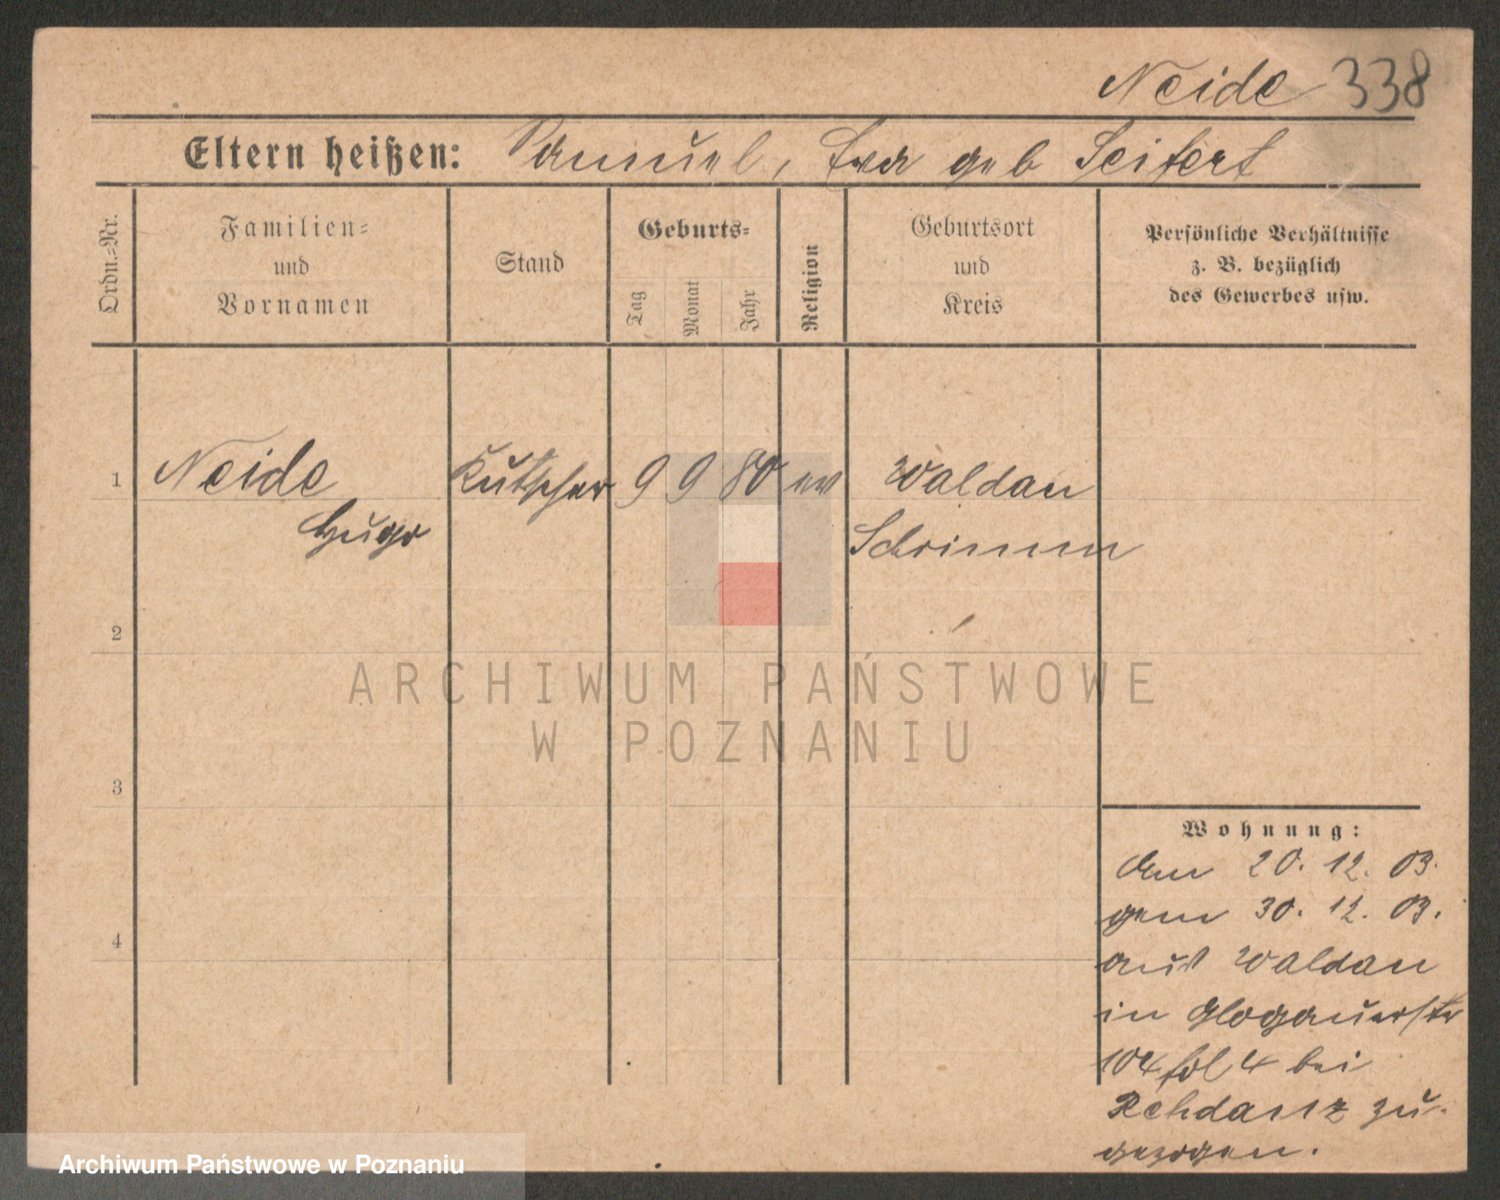 Neide 338
Eltern heißen: Samuel, Eva geb Seifert
Ordn.-Nr.
Familien-
und
Vornamen
Stand
Geburts-
Tag
Monat
Jahr
Religion
Geburtsort
und
Kreis
Persönliche Verhältnisse
z. B. bezüglich
des Gewerbes usw.
1 Neide Kutscher 9 9 80 ev Waldau
Hugo Schrimm
2
ARCHIWUM PAŃSTWOWE
W POZNANIU
3
Wohnung:
Am 20. 12. 03.
gem 30. 12. 03.
aus Waldau
in Glogauerstr
104 fol 4 bei
Rehdanz zu-
gezogen.
4
Archiwum Państwowe w Poznaniu